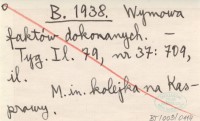 B. 1938. Wymowa
faktów dokonanych. —
Tyg. Il. 79, nr 37: 709,
il.
M. in. kolejka na Kas-
prowy.